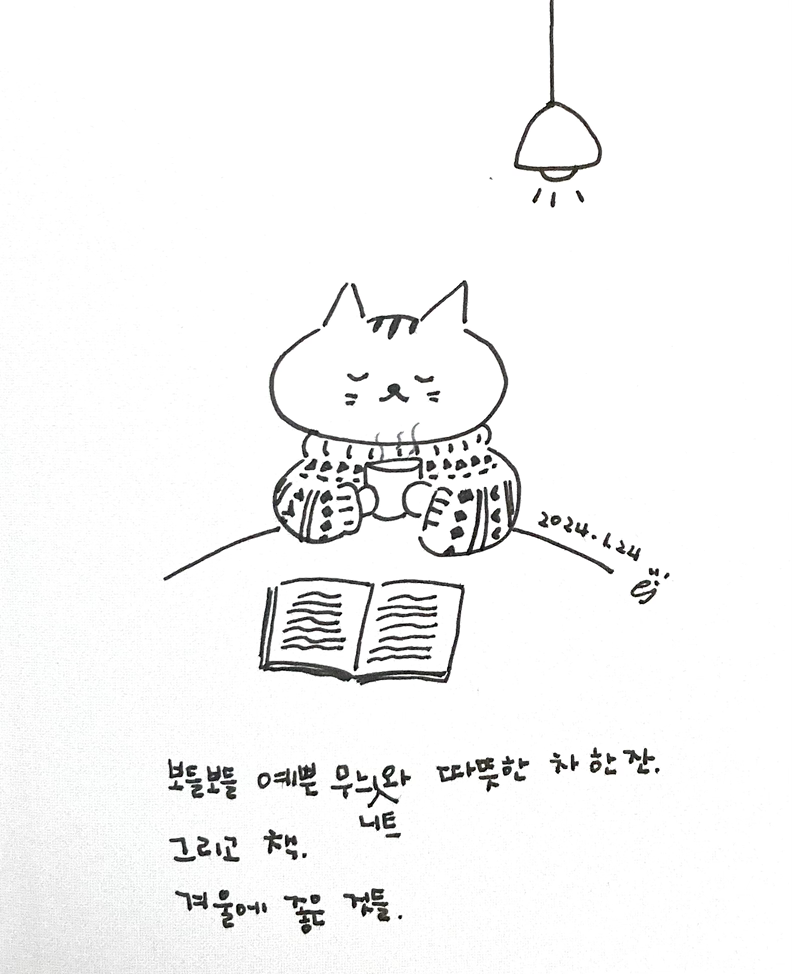 2024.1.24
ej
보들보들 예쁜 무늬 니트와 따뜻한 차 한 잔.
그리고 책.
겨울에 좋은 것들.